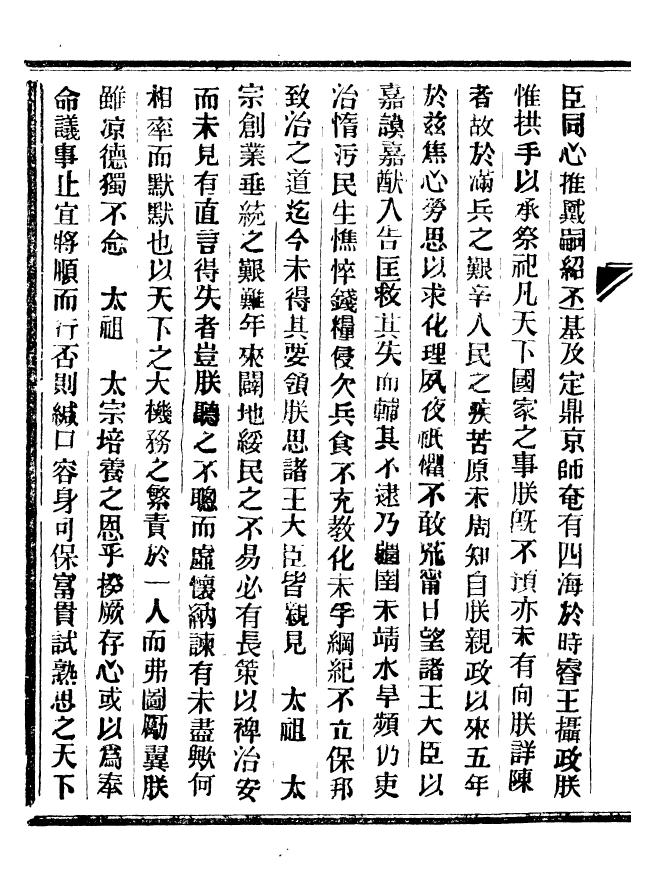 臣同心推戴嗣紹丕基及定鼎京師奄有四海於時睿王攝政朕
惟拱手以承祭祀凡天下國家之事朕旣不預亦未有向朕詳陳
者故於滿兵之艱辛人民之疾苦原未周知自朕親政以來五年
於兹焦心勞思以求化理夙夜祇懼不敢荒甯日望諸王大臣以
嘉謨嘉猷入告匡救其失而輔其不逮乃疆圉未靖水旱頻仍吏
治惰污民生憔悴錢糧侵欠兵食不充教化未孚綱紀不立保邦
致治之道迄今未得其要領朕思諸王大臣皆親見　太祖　太
宗創業垂統之艱難年來闢地綏民之不易必有長策以裨治安
而未見有直言得失者豈朕聽之不聰而虛懷納諫有未盡歟何
相率而默默也以天下之大機務之繁責於一人而弗圖勵翼朕
雖凉德獨不念　太祖　太宗培養之恩乎揆厥存心或以爲奉
命議事止宜將順而行否則緘口容身可保富貴試熟思之天下